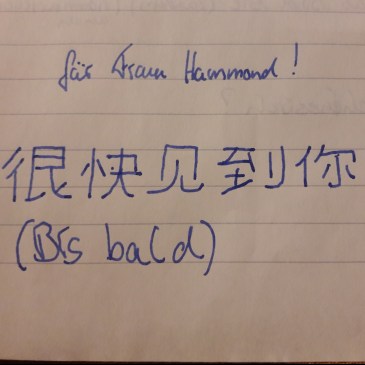 für Frau Hammond!
很快见到你
(Bis bald)